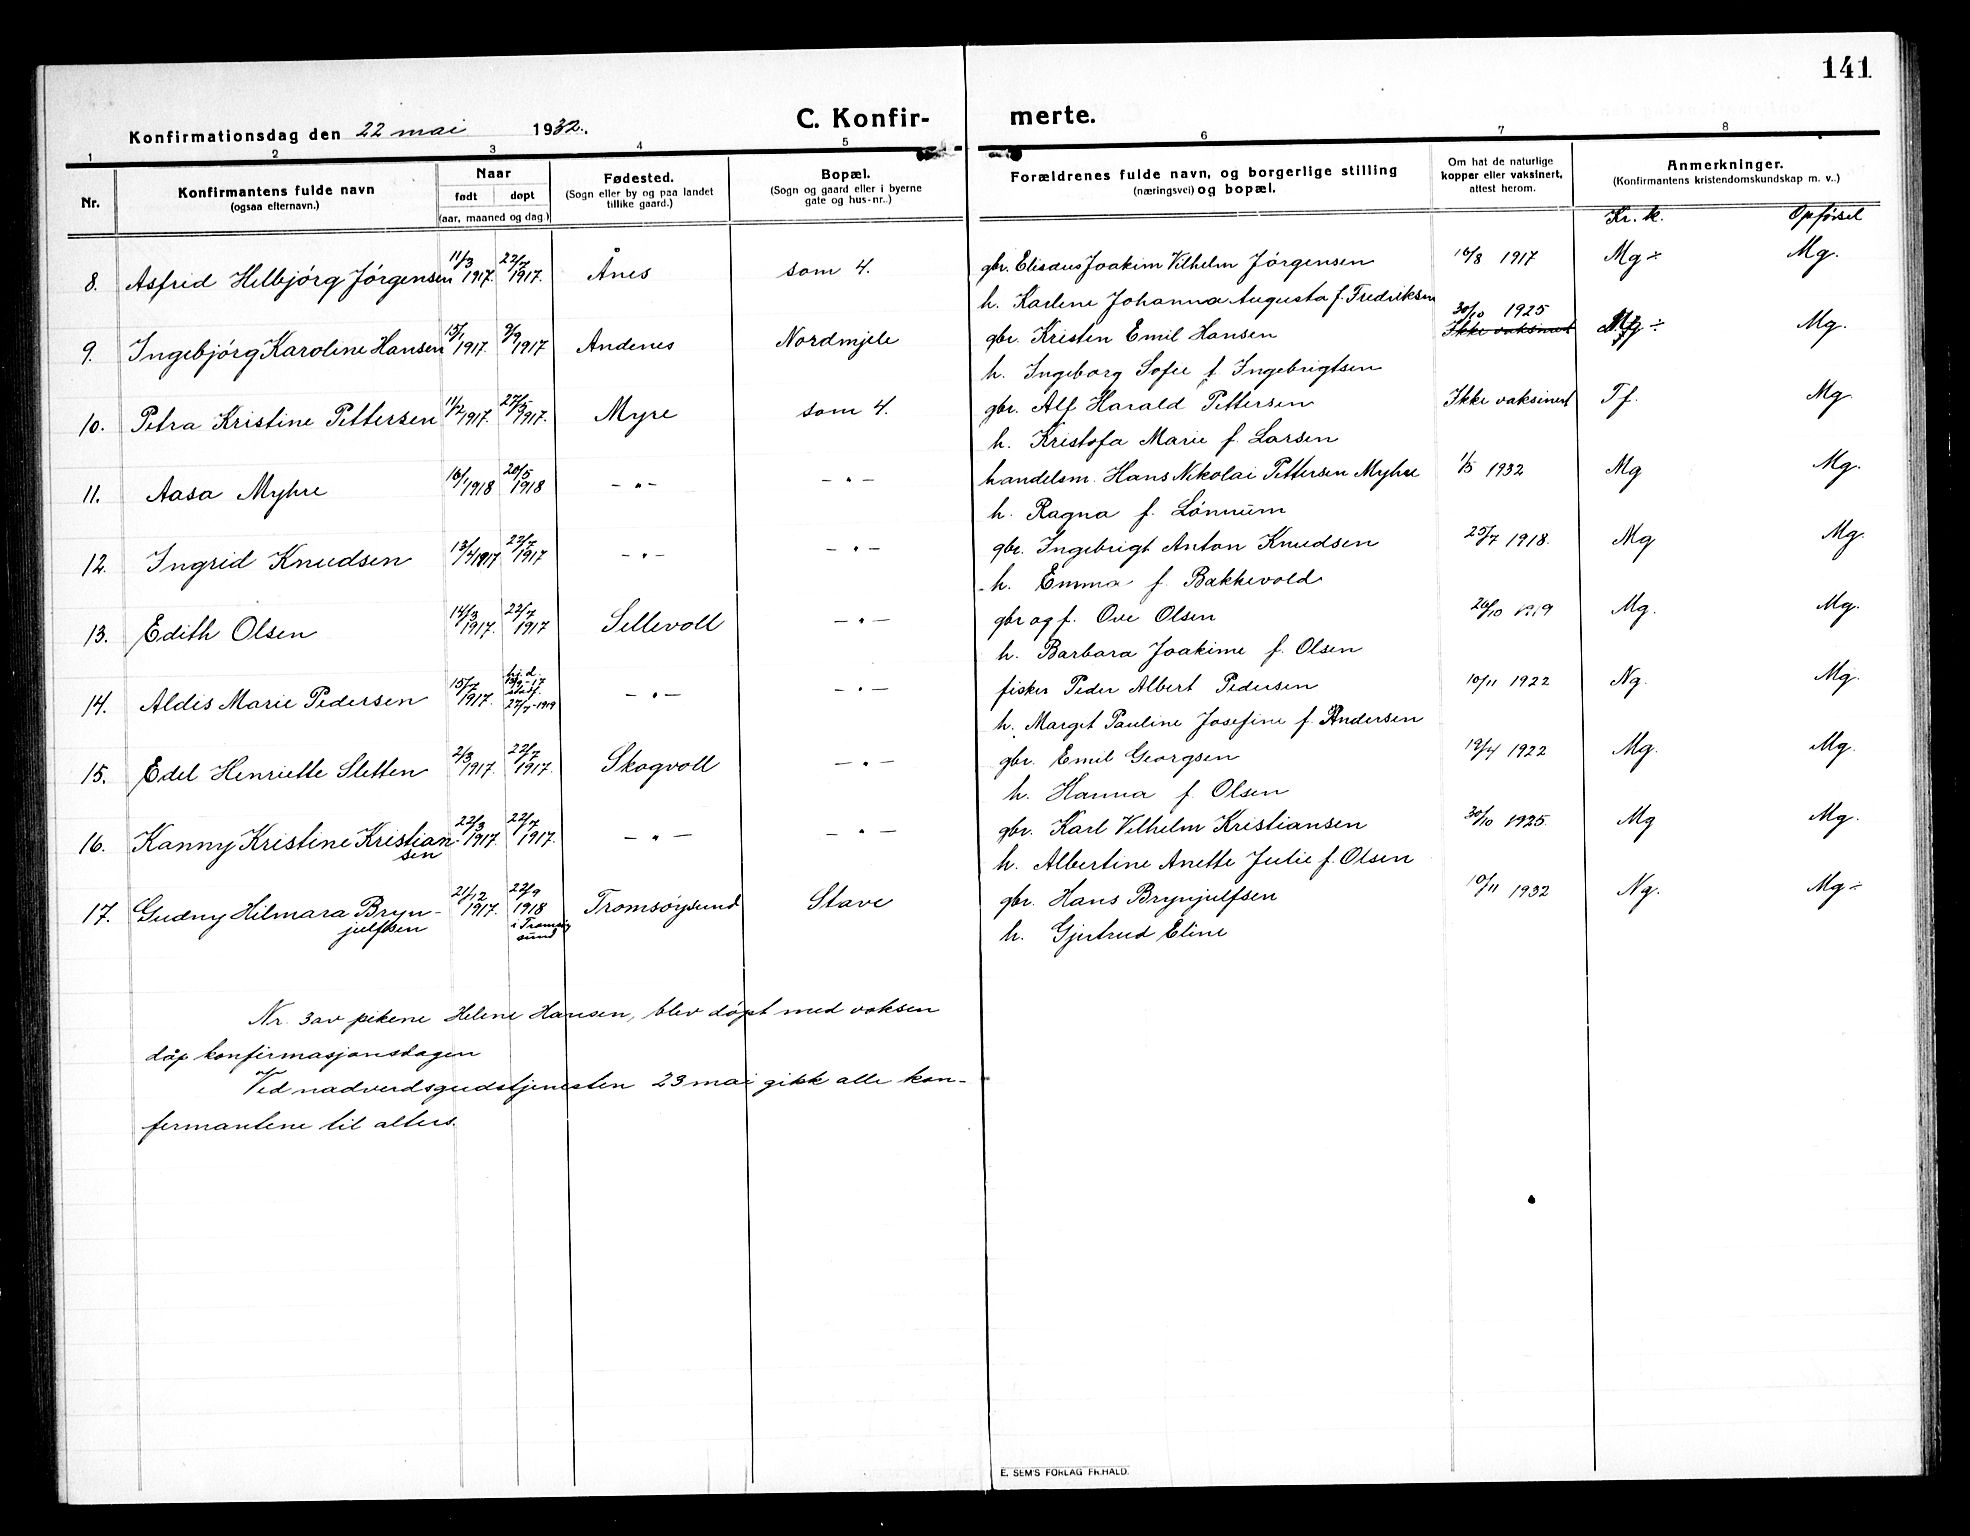 141
Konfirmationsdag den 22 mai 1932. C. Konfir- merte.
1 2 3 4 5 6 7 8
Nr. Konfirmantens fulde navn (ogsaa efternavn.) Naar født døpt (aar, maaned og dag.) Fødested. (Sogn eller by og paa landet tillike gaard.) Bopæl. (Sogn og gaard eller i byerne gate og hus-nr..) Forældrenes fulde navn, og borgerlige stilling (næringsvei) og bopæl. Om hat de naturlige kopper eller vaksinert, attest herom. Anmerkninger. (Konfirmantens kristendomskundskap m. v..)
Kr. k. Opførsel
8. Asfrid Helbjørg Jørgensen 11/3 1917. 22/7 1917. Ånes som 4. gbr. Elisæus Joakim Vilhelm Jørgensen 16/8 1917 Mg ÷ Mg.
h. Karline Johanna Augusta f. Fredriksen
9. Ingebjørg Karoline Hansen 15/1 1917. 9/9 1917 Andenes Nordmjele gbr. Kristen Emil Hansen 30/10 1925 Ikke vaksinert Mg ÷ Mg.
h. Ingeborg Sofie f. Ingebrigtsen
10. Petra Kristine Pettersen 11/2 1917. 27/5 1917. Myre som 4. gbr. Alf Harald Pettersen Ikke vaksinert Tf. Mg.
h. Kristofa Marie f. Larsen
11. Aasa Myhre 16/1 1918 20/5 1918 - " - - " - handelsm. Hans Nikolai Pettersen Myhre 1/5 1932 Mg Mg.
h. Ragna f. Lønnum
12. Ingrid Knudsen 13/4 1917 22/7 1917 - " - - " - gbr. Ingebrigt Anton Knudsen 25/7 1918. Mg Mg.
h. Emma f. Bakkevold
13. Edith Olsen 14/3 1917. 22/7 1917 Sellevoll - " - gbr og f. Ove Olsen 26/10 1919 Mg. Mg.
h. Barbara Joakime f. Olsen
14. Aldis Marie Pedersen 15/7 1917. hj. d. stadf. 27/7-1919 - " - - " - fisker Peder Albert Pedersen 10/11 1922 Ng. Mg.
h. Margit Pauline Josefine f. Andersen
15. Edel Henriette Sletten 2/3 1917. 22/7 1917. Skogvoll - " - gbr. Emil Georgsen 19/4 1922 Mg. Mg.
h. Hanna f. Olsen
16. Kanny Kristine Kristiansen 22/3 1917. 22/7 1917. - " - - " - gbr. Karl Vilhelm Kristiansen 30/10 1925. Mg Mg.
h. Albertine Anette Julie f. Olsen
17. Gudny Hilmara Brynjulfsen 21/12 1917. 22/9 1918 i Tromsøysund Tromsøysund Stave gbr. Hans Brynjulfsen 10/11 1932 Ng. Mg ÷
h. Gjertrud Eline
Nr. 3 av pikene Helene Hansen, blev døpt med voksen
dåp konfirmasjonsdagen
Ved nadverdsgudstjenesten 23 mai gikk alle kon-
fermantene til alters.
E. SEM'S FORLAG FR.HALD.